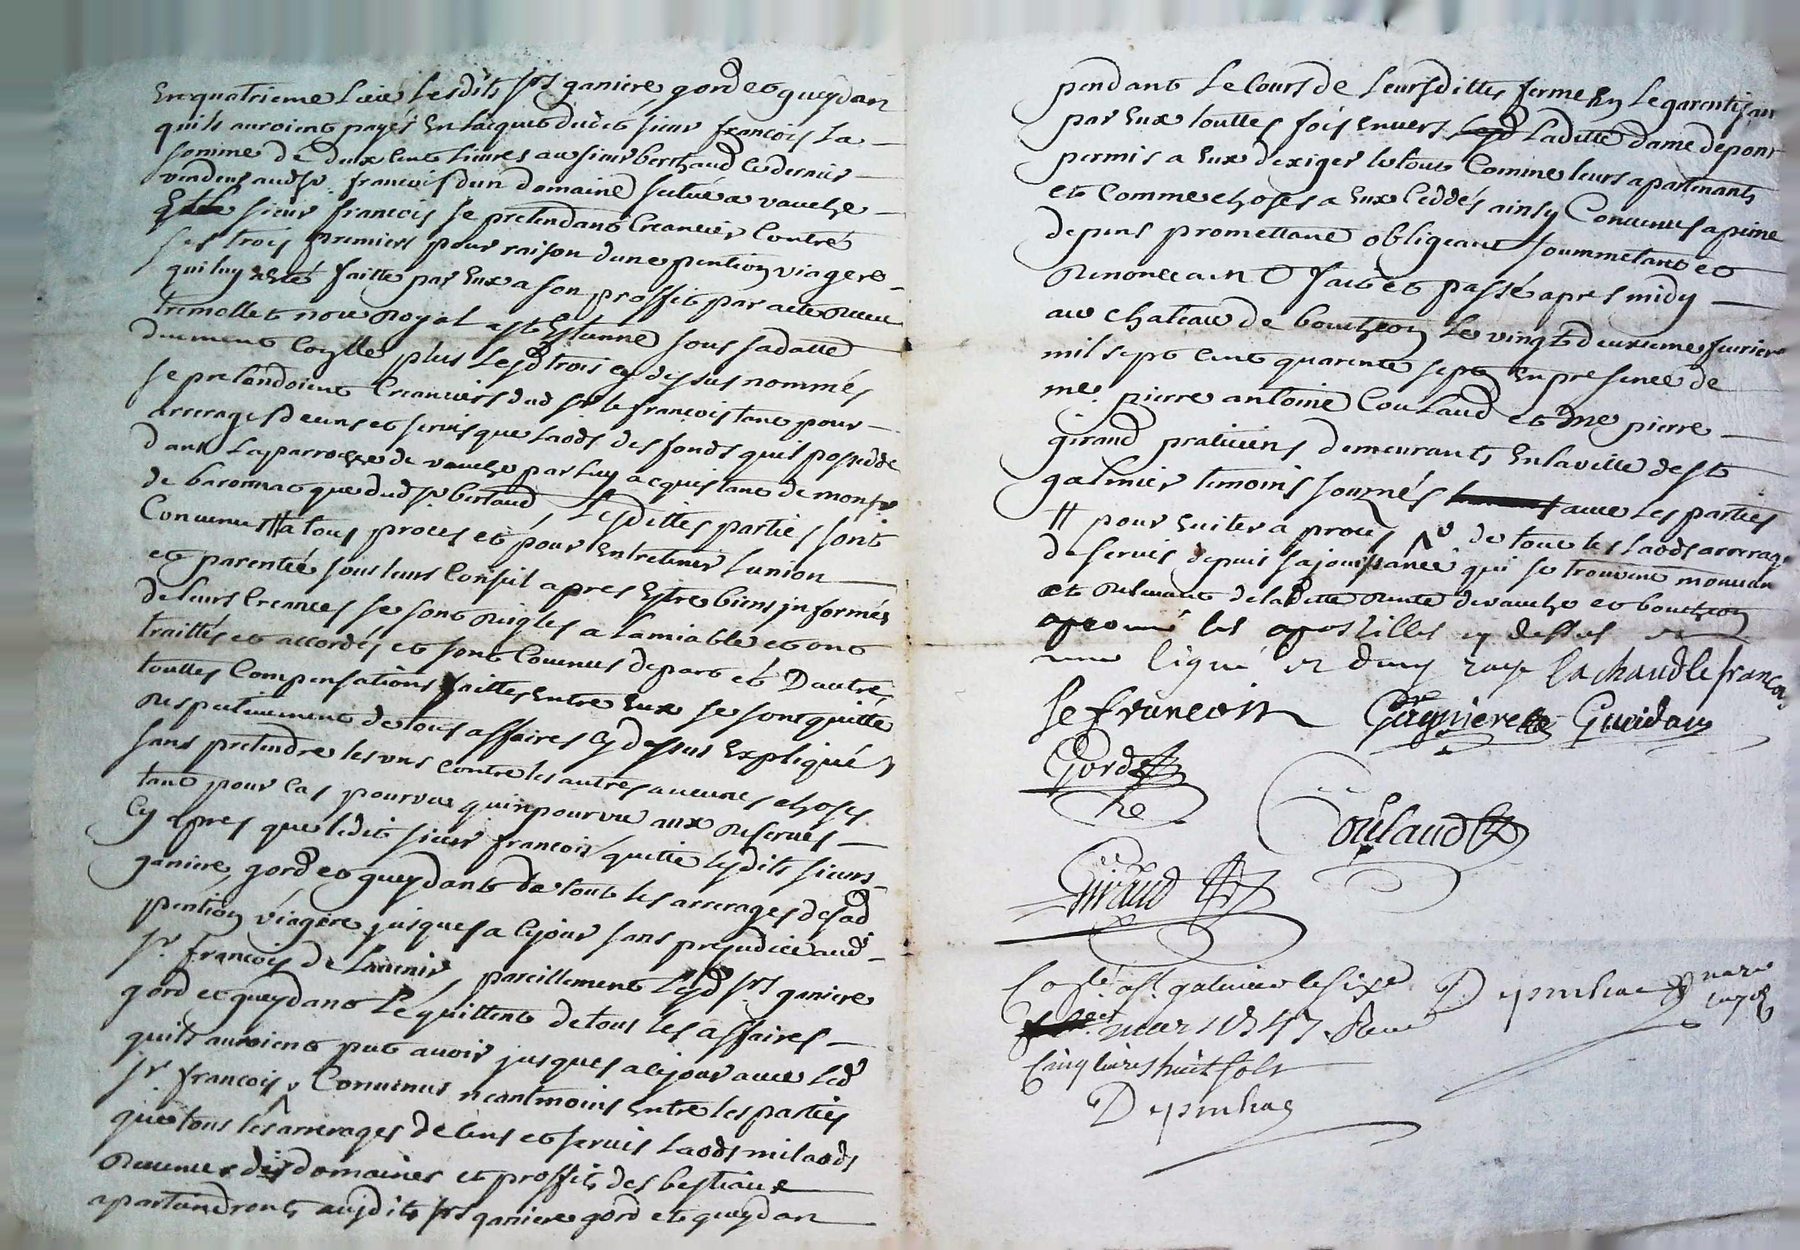 En quatrieme Lieu Lesdits srs ganiere gord et gueydan
quils auroient payés En Lacquit dudit sieur françois La
somme de deux Cent Livres au sieur berthaud Le dernier
vendeur audsr. françois d'un domaine scitué a vauche
sieur françois se pretendant Creancier Contre
Les trois premiers pour raison dune pention viagere
qui luy a esté faitte par Eux a son proffit par acte Receu
trimollet nore Royal a st Estienne sous sa datte
duement Coñllé plus Lesd trois cy dessus nommés
se pretendoient Creanciers dud sr le françois tant pour
arrerages de cens et servis que Laods des fonds quil possede
dans La parroesse de vauche par Luy acquis tant de monsr
de baronnat que dud sr bertaud, Lesdittes parties sont
Convenues # a tous proces et pour Entretenir Lunion
et parentée sous leurs Conseil apres Estre bien informés
de leurs Creances se sont Reigles a Lamiable et ont
traittés et accordés et sont Convenus de part et Dautre
touttes Compensations faittes Entre Eux se sont quitte
Respectivement de tous affaires cy dessus Expliqués
sans pretendre les uns contre les autres aucunes choses
tant pour Cas pourvu quinpourvu aux Reserves
Cy apres que ledit sieur françois quitte Lesdits sieurs
ganiere, gord et gueydant de tout les arrerages de sad
pention viagere jusques a Cejour sans prejudice aud
sr. françois de Lavenir, pareillement Lesd srs ganiere
gord et gueydant Le quittent de tous Les affaires
quils auroient put avoir jusques a Cejour avec Led
sr. françois, Convenus neantmoins Entre les parties
que tous les arrerages de Cens et servis Laods milaods
Revenus des domaines et proffits des bestiaux
apartiendront ausdits srs ganiere gord et gueydan
pendant Le Cours de Leursdittes ferme En Le garentissant
par Eux touttes fois Envers Laditte dame depont
permis a Eux dexiger le tout Comme leurs apartenants
et Comme choses a Eux Ceddés ainsy Convenues a peine
depens promettant obligeant soummetant et
Renonceant & fait et passé apres midy
au chateau de boutheon Le vingt deuxieme fevrier
mil sept Cent quarente sept En presence de
me. pierre antoine Coulaud et me pierre
girand praticiens demeurants En la ville de st
galmier temoins sournés avec Les parties
# pour Eviter a proces de tout les Laods arrerages
de servis depuis sa jouissance qui se trouvent mouvan
et Relevant de laditte Rente de vauche et boutheon
aprouvé les apostilles cy dessus et
une ligne et demy raye Lachaud le françois
Le françois Gagniere Gueidan
Gord
Coulaud
Giraud
Coñlé a st. galmier le sixe
mars 1747. Recu
Cinq livres huit sols